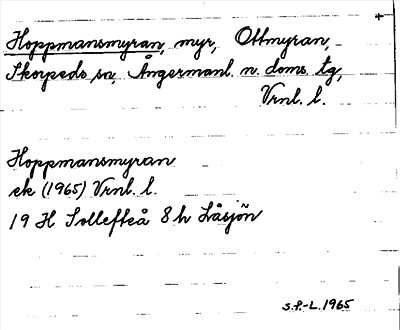 Hoppmansmyran, myr, Ottmyran,
Skorpeds sn, Ångermanl. n. doms. tg,
Vrnl. l.
Hoppmansmyran
ek (1965) Vrnl. l.
19 H Sollefteå 8 h Låsjön
S.P.-L. 1965